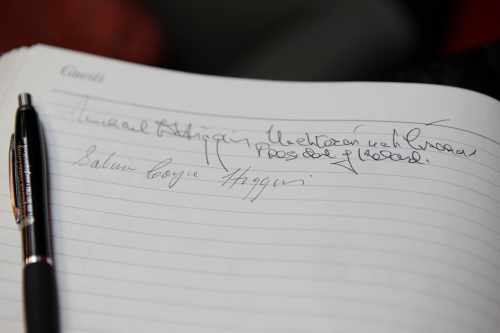 Guests
Michael D Higgins Uachtarán na hÉireann
President of Ireland.
Sabina Coyne Higgins